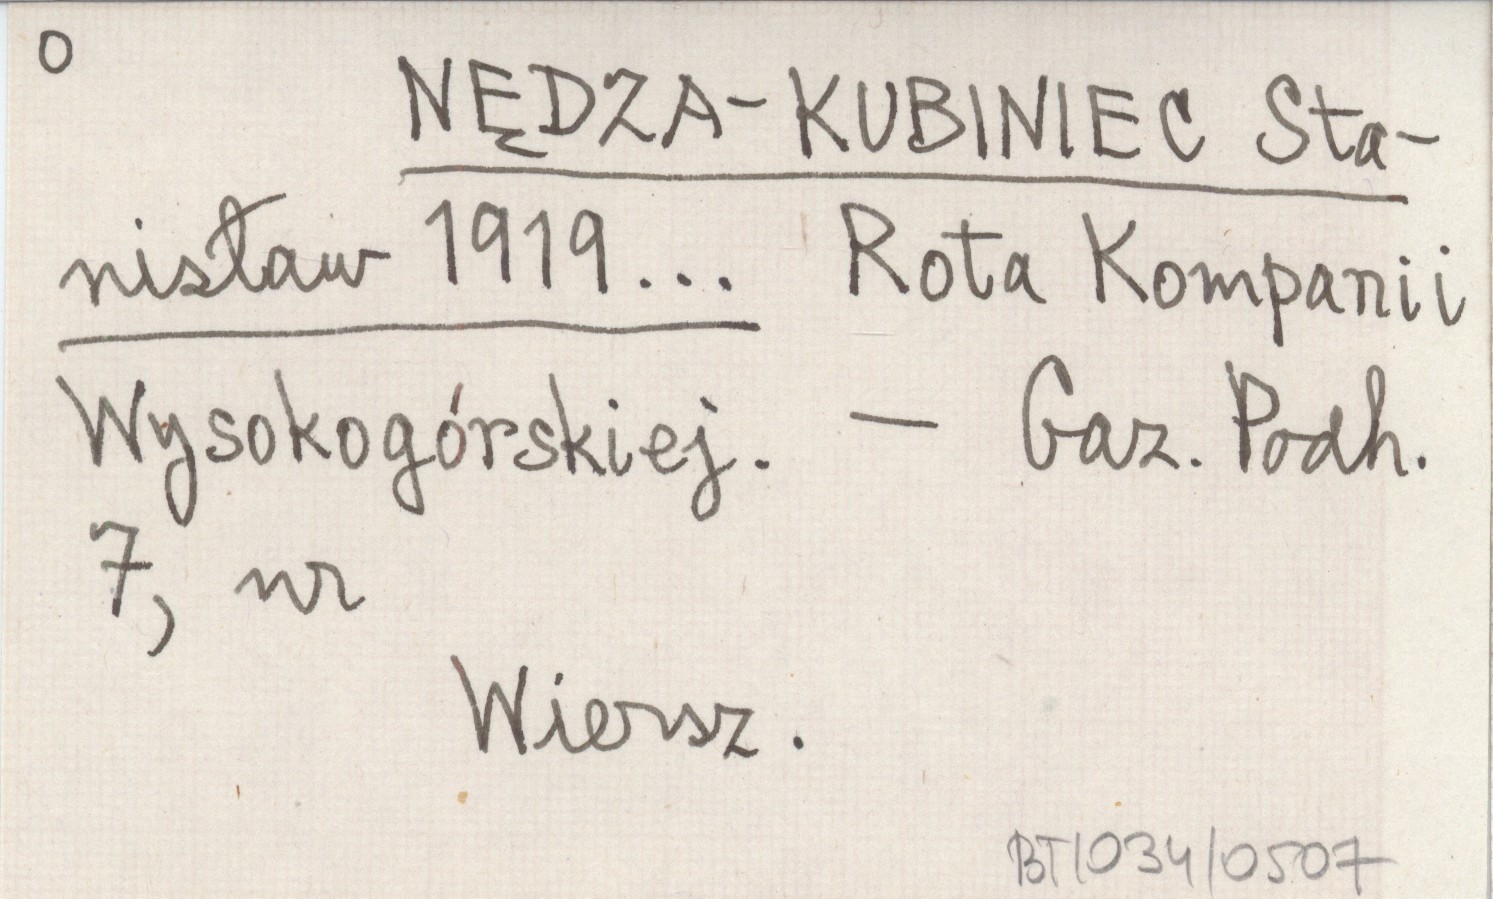 O
NĘDZA-KUBINIEC Sta-
nisław 1919... Rota Kompanii
Wysokogórskiej. — Gaz. Podh.
7, nr
Wiersz.
BT/034/0507